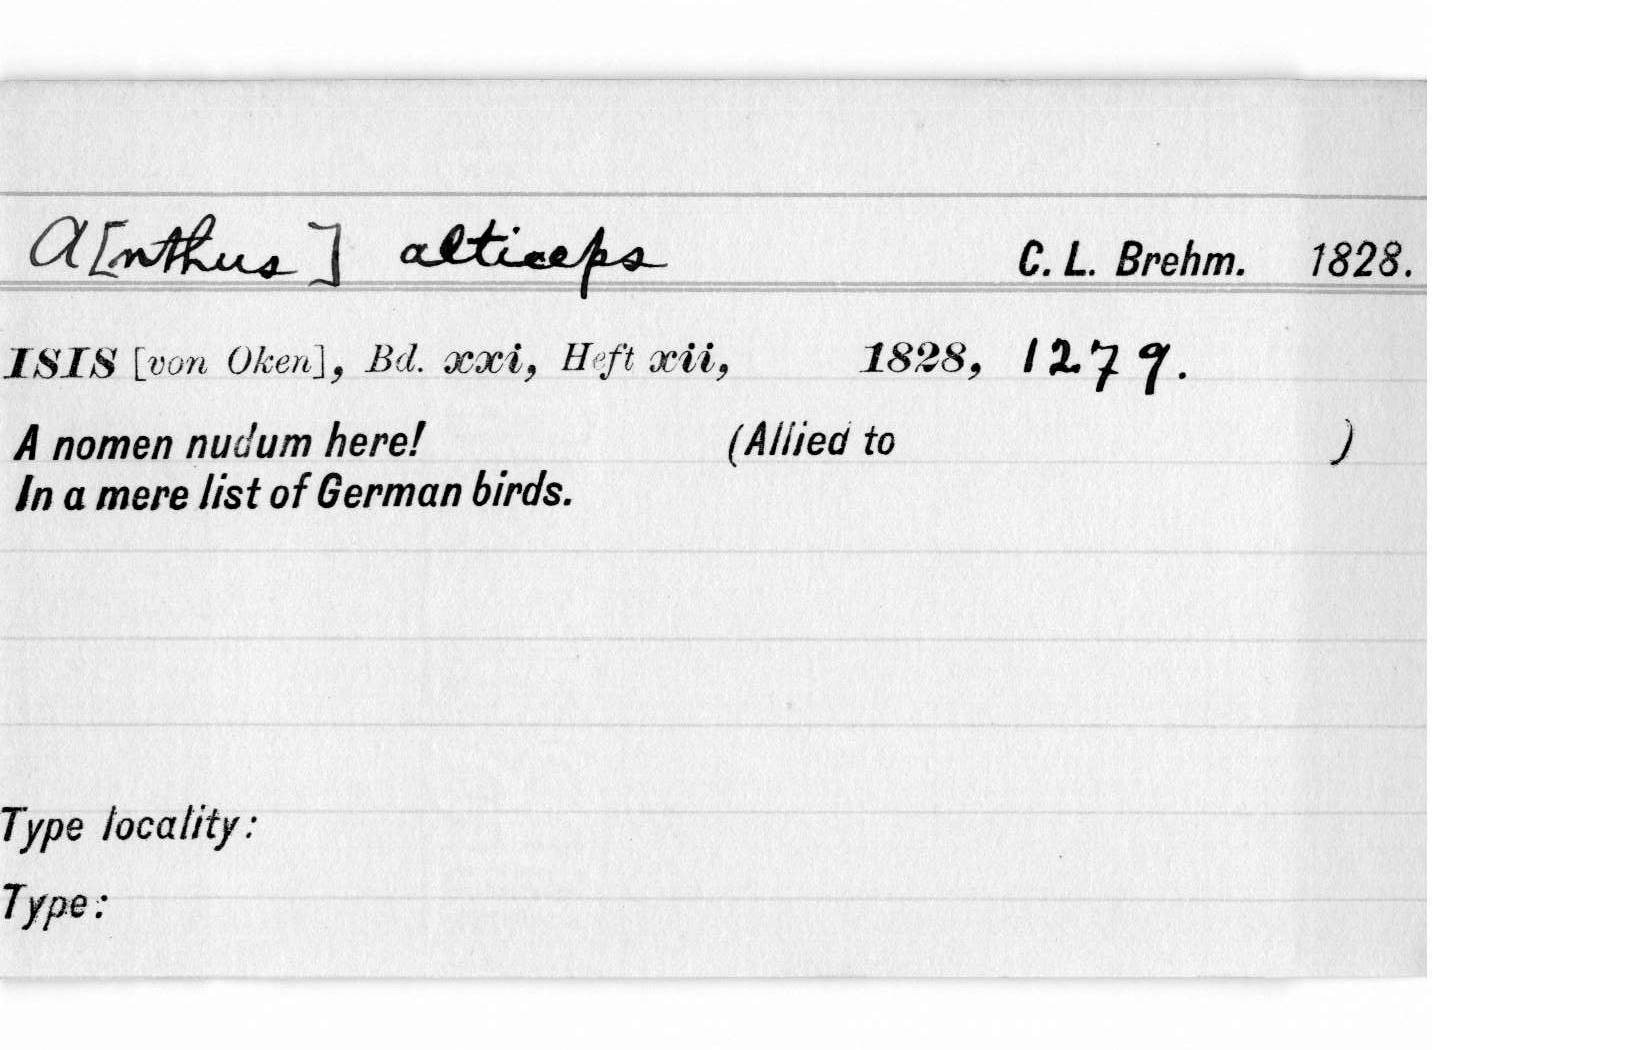 A[nthus] alticeps C. L. Brehm. 1828.
ISIS [von Oken], Bd. xxi, Heft xii, 1828, 1279.
A nomen nudum here! (Allied to )
In a mere list of German birds.
Type locality:
Type: